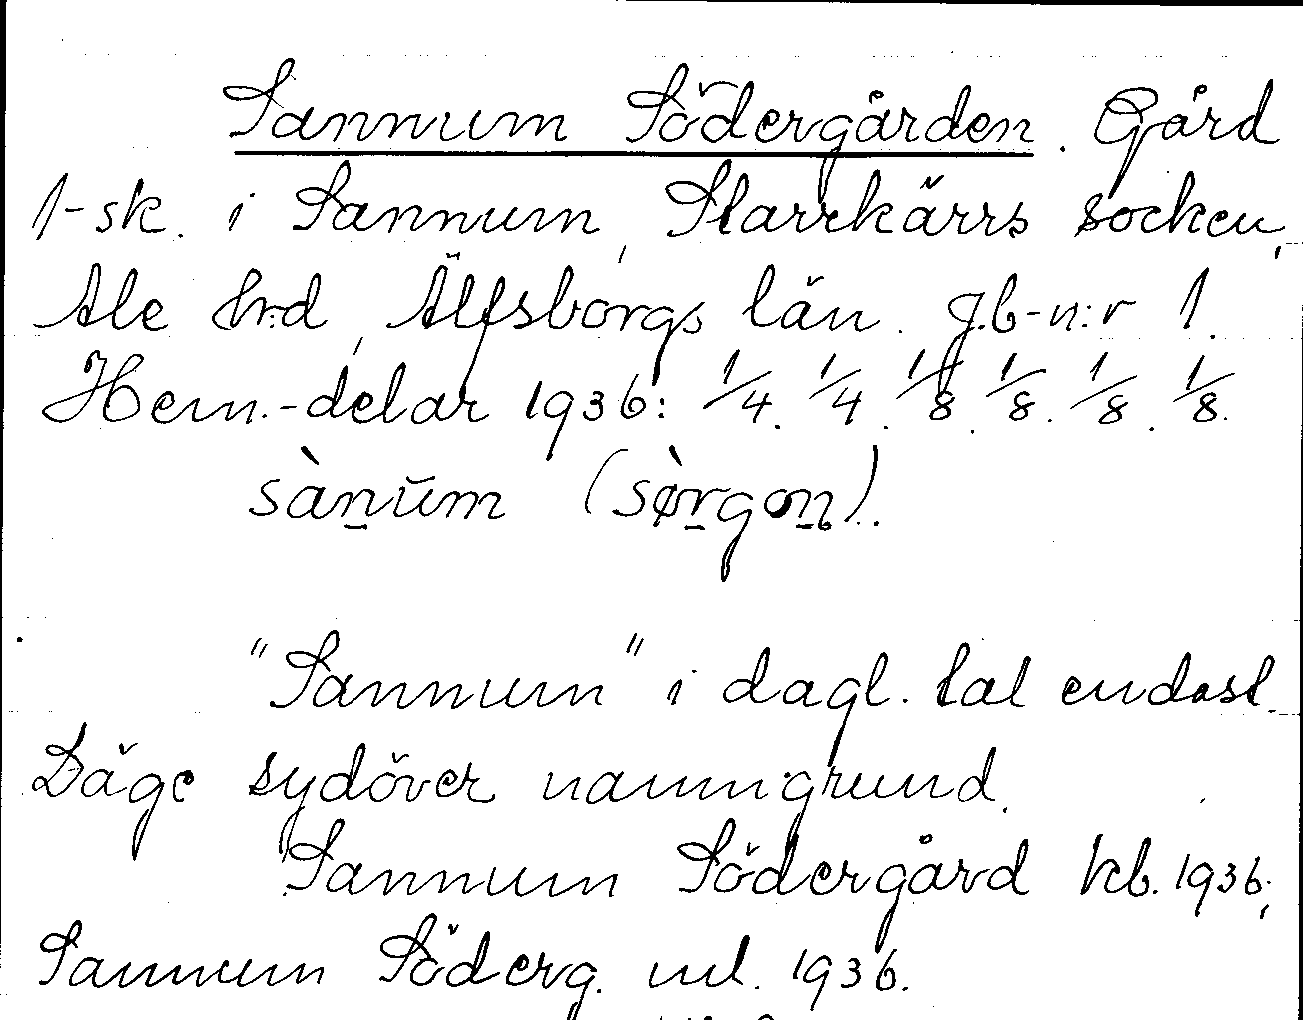 Sannum Södergården. Gård
1-sk. i Sannum, Starrkärrs socken,
Ale hrd, Älfsborgs län. Jb-n:r 1.
Hem.-delar 1936: 1/4. 1/4. 1/8. 1/8. 1/8. 1/8.
sànŭm (sørgɷn).
"Sannum" i dagl. tal endast.
Läge sydöver namngrund.
Sannum Södergård kb. 1936;
Sannum Söderg. ml. 1936.